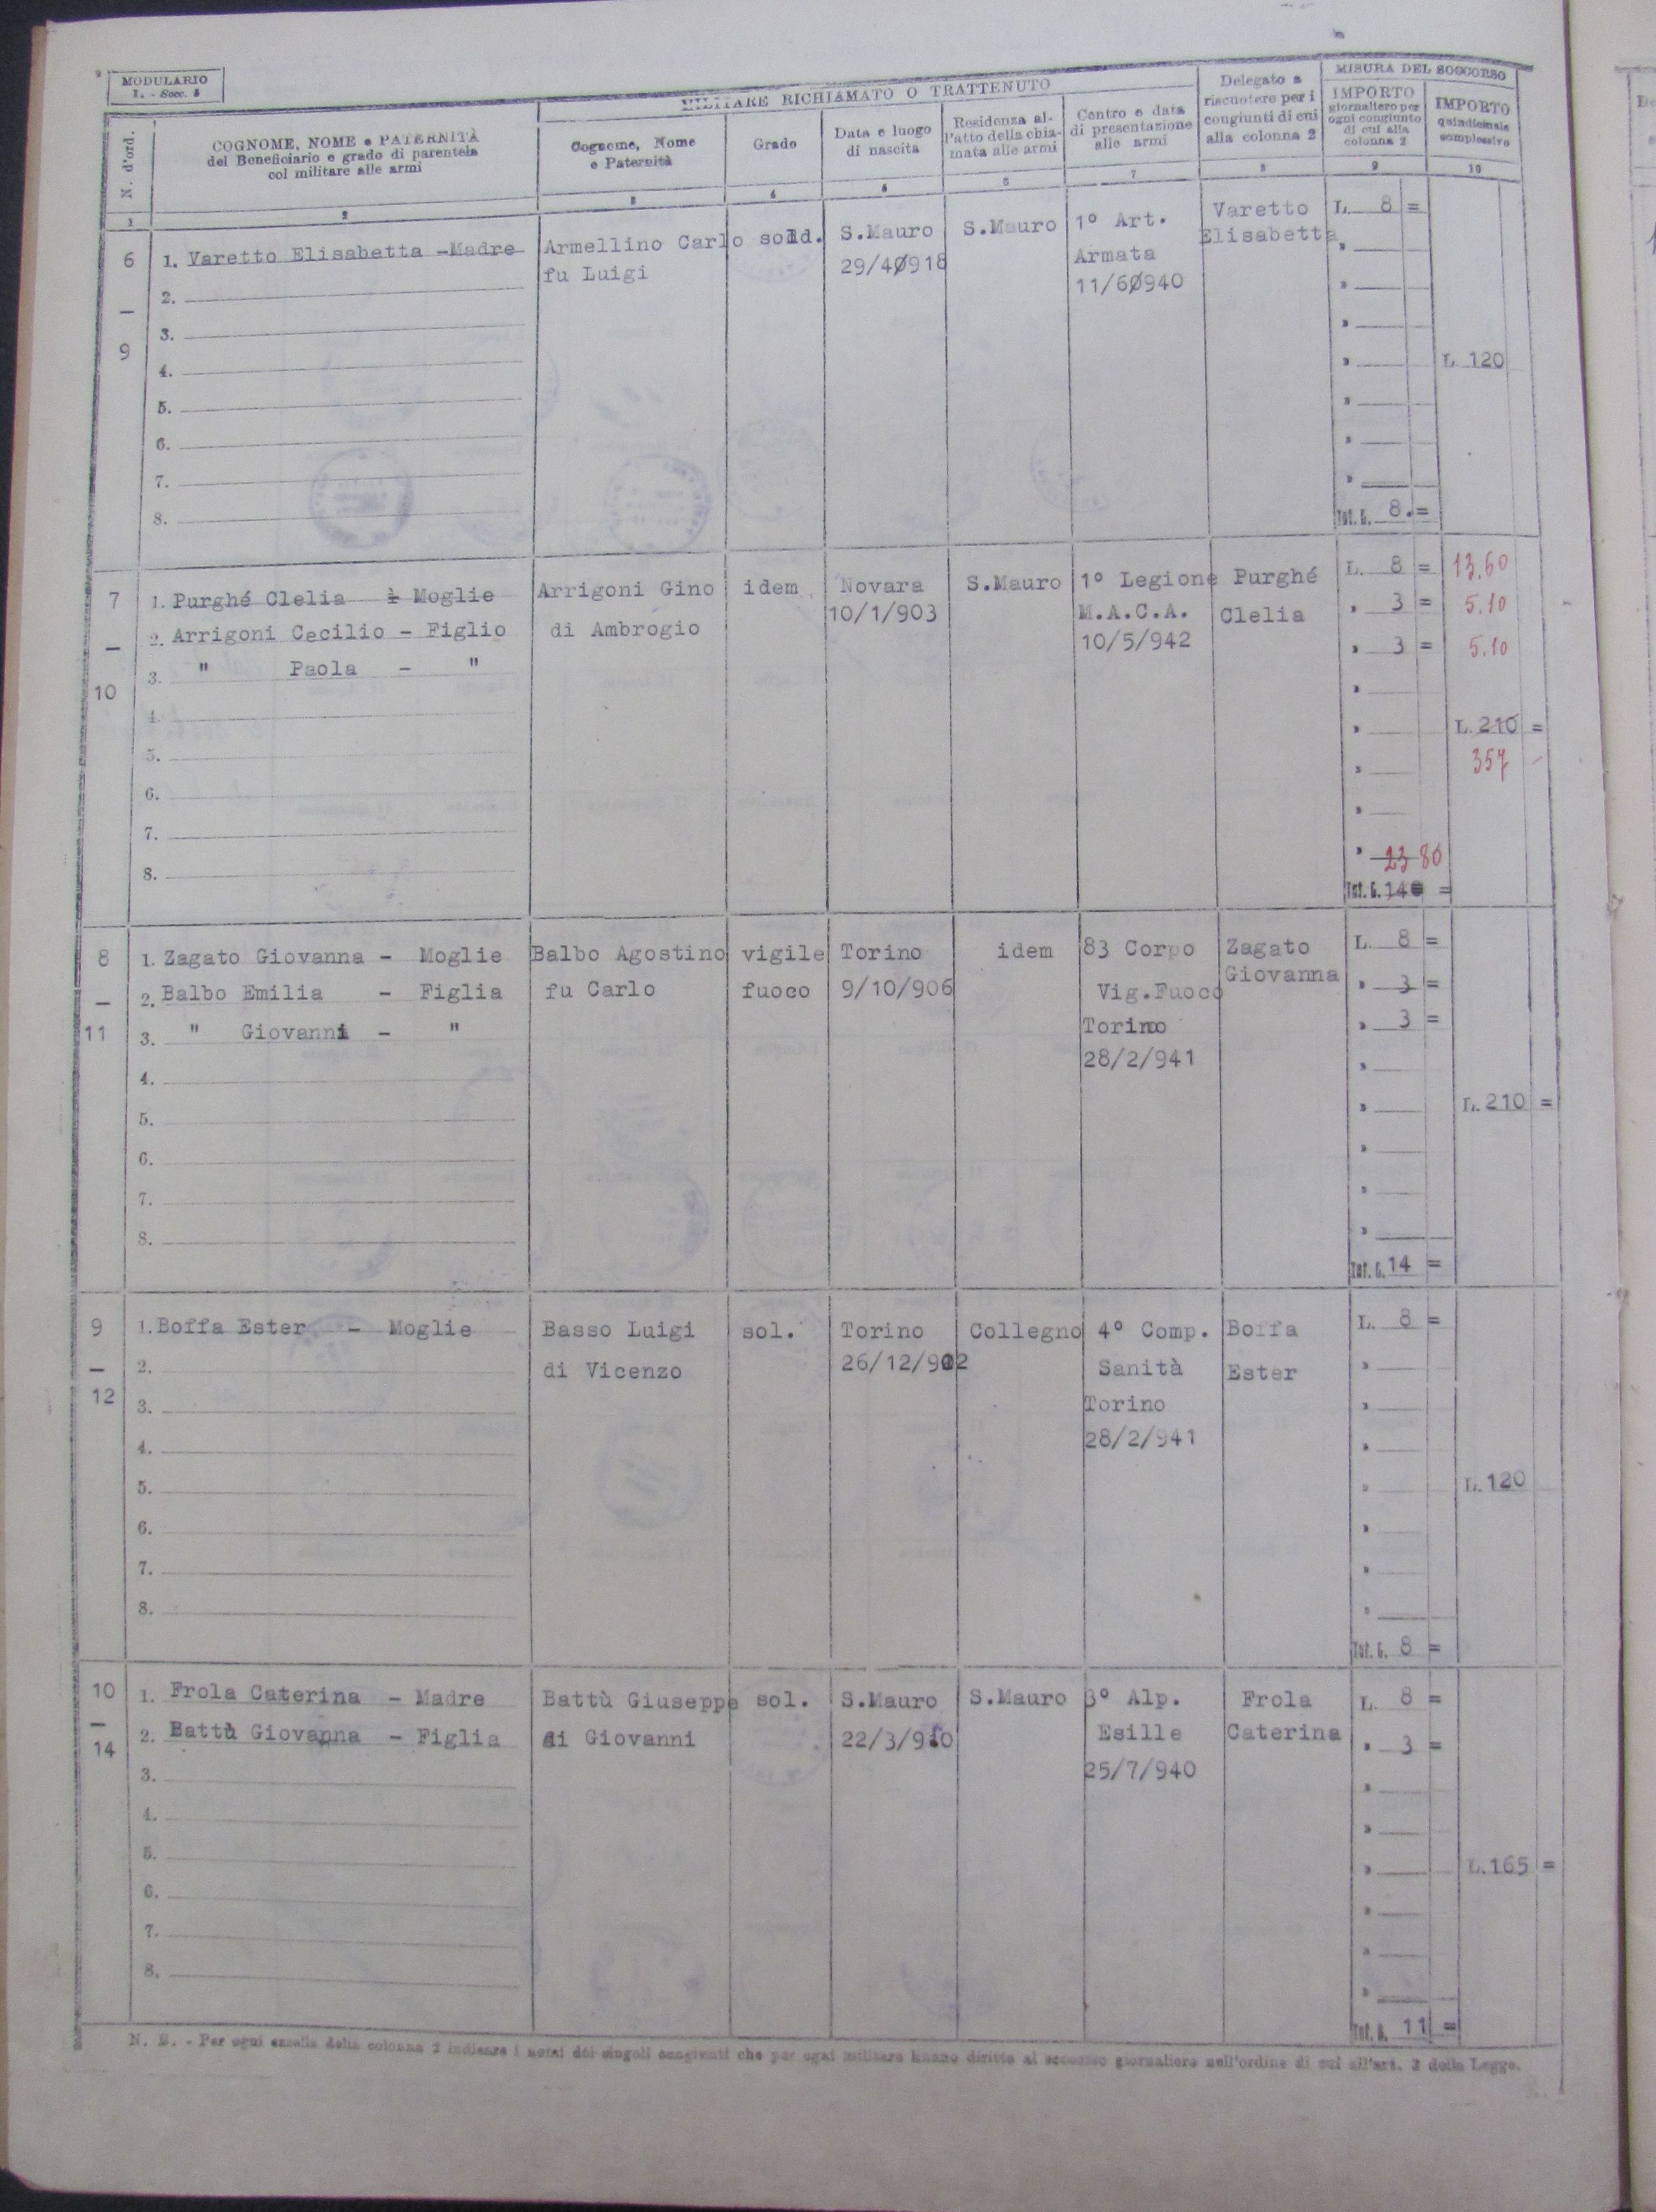 MODULARIO
I. - Socc. 5
MILITARE RICHIAMATO O TRATTENUTO
MISURA DEL SOCCORSO
N. d'ord.
COGNOME, NOME e PATERNITÀ
del Beneficiario e grado di parentela
col militare alle armi
Cognome, Nome
e Paternità
Grado
Data e luogo
di nascita
Residenza al-
l'atto della chia-
mata alle armi
Centro e data
di presentazione
alle armi
Delegato a
riscuotere per i
congiunti di cui
alla colonna 2
IMPORTO
giornaliero per
ogni congiunto
di cui alla
colonna 2
IMPORTO
quindicinale
complessivo
1 2 3 4 5 6 7 8 9 10
6
—
9
1. Varetto Elisabetta -Madre
2.
3.
4.
5.
6.
7.
8.
Armellino Carlo
fu Luigi
sold.
S.Mauro
29/4/918
S.Mauro
1° Art.
Armata
11/6/940
Varetto
Elisabetta
L. 8 =
Tot. G. 8.=
L. 120
7
—
10
1. Purghé Clelia - Moglie
2. Arrigoni Cecilio - Figlio
3. " Paola - "
4.
5.
6.
7.
8.
Arrigoni Gino
di Ambrogio
idem
Novara
10/1/903
S.Mauro
1° Legione
M.A.C.A.
10/5/942
Purghé
Clelia
L. 8 = 13,60
" 3 = 5.10
" 3 = 5.10
L. 210 =
357
23 80
Tot. G. 14 =
8
—
11
1. Zagato Giovanna - Moglie
2. Balbo Emilia - Figlia
3. " Giovanni - "
4.
5.
6.
7.
8.
Balbo Agostino
fu Carlo
vigile
fuoco
Torino
9/10/906
idem
83 Corpo
Vig.Fuoco
Torino
28/2/941
Zagato
Giovanna
L. 8 =
" 3 =
" 3 =
Tot. G. 14 =
L. 210 =
9
—
12
1. Boffa Ester - Moglie
2.
3.
4.
5.
6.
7.
8.
Basso Luigi
di Vicenzo
sol.
Torino
26/12/902
Collegno
4° Comp.
Sanità
Torino
28/2/941
Boffa
Ester
L. 8 =
Tot. G. 8 =
L. 120
10
—
14
1. Frola Caterina - Madre
2. Battù Giovanna - Figlia
3.
4.
5.
6.
7.
8.
Battù Giuseppe
di Giovanni
sol.
S.Mauro
22/3/910
S.Mauro
3° Alp.
Esille
25/7/940
Frola
Caterina
L. 8 =
" 3 =
Tot. G. 11 =
L. 165 =
N. B. - Per ogni casella della colonna 2 indicare i nomi dei singoli congiunti che per ogni militare hanno diritto al soccorso giornaliero nell'ordine di cui all'art. 3 della Legge.